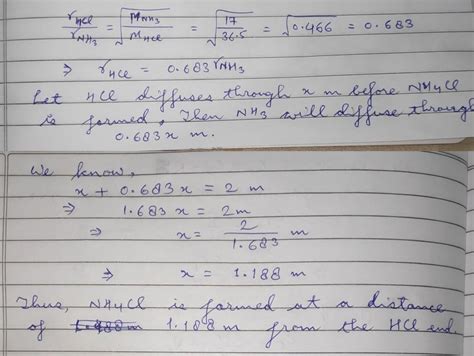 rHCl / rNH3 = √(MNH3 / MHCl) = √(17 / 36.5) = √0.466 = 0.683
⇒ rHCl = 0.683 rNH3
Let HCl diffuses through x m before NH4Cl
is formed, Then NH3 will diffuse through
0.683x m.
We know,
x + 0.683x = 2 m
⇒ 1.683 x = 2m
⇒ x = 2 / 1.683 m
⇒ x = 1.188 m
Thus, NH4Cl is formed at a distance
of 1.188 m from the HCl end.